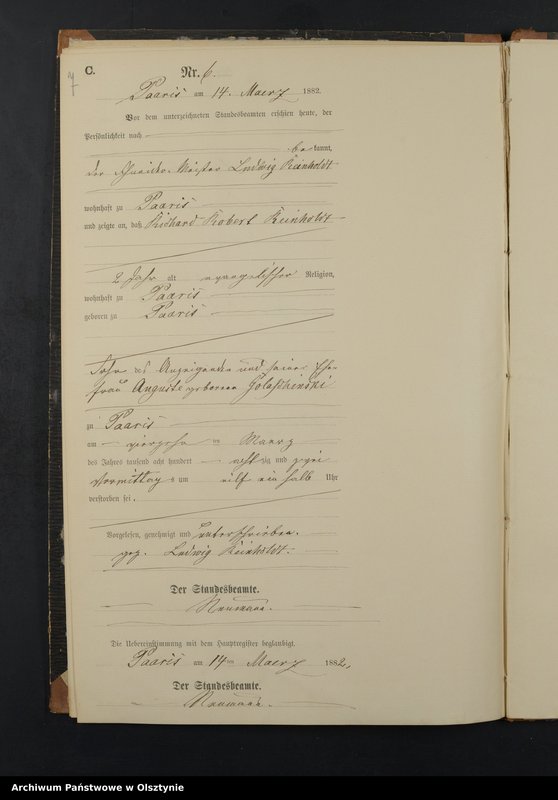 C.
7
Nr. 6.
Paaris am 14. Maerz 1882.
Vor dem unterzeichneten Standesbeamten erschien heute, der
Persönlichkeit nach
be kannt,
der Schneider-Meister Ludwig Reinholdt
wohnhaft zu Paaris
und zeigte an, daß Richard Robert Reinholdt
2 Jahr alt evangelischer Religion,
wohnhaft zu Paaris
geboren zu Paaris
Sohn des Anzeigenden und seiner Ehe-
frau Auguste geborenen
zu Paaris
am vierzehn ten Maerz
des Jahres tausend acht hundert acht zig und zwei
Vormittags um eilf ein halb Uhr
verstorben sei.
Vorgelesen, genehmigt und unterschrieben.
gez. Ludwig Reinholdt.
Der Standesbeamte.
Neumann.
Die Uebereinstimmung mit dem Hauptregister beglaubigt.
Paaris am 14ten Maerz 1882.
Der Standesbeamte.
Neumann.
Archiwum Państwowe w Olsztynie